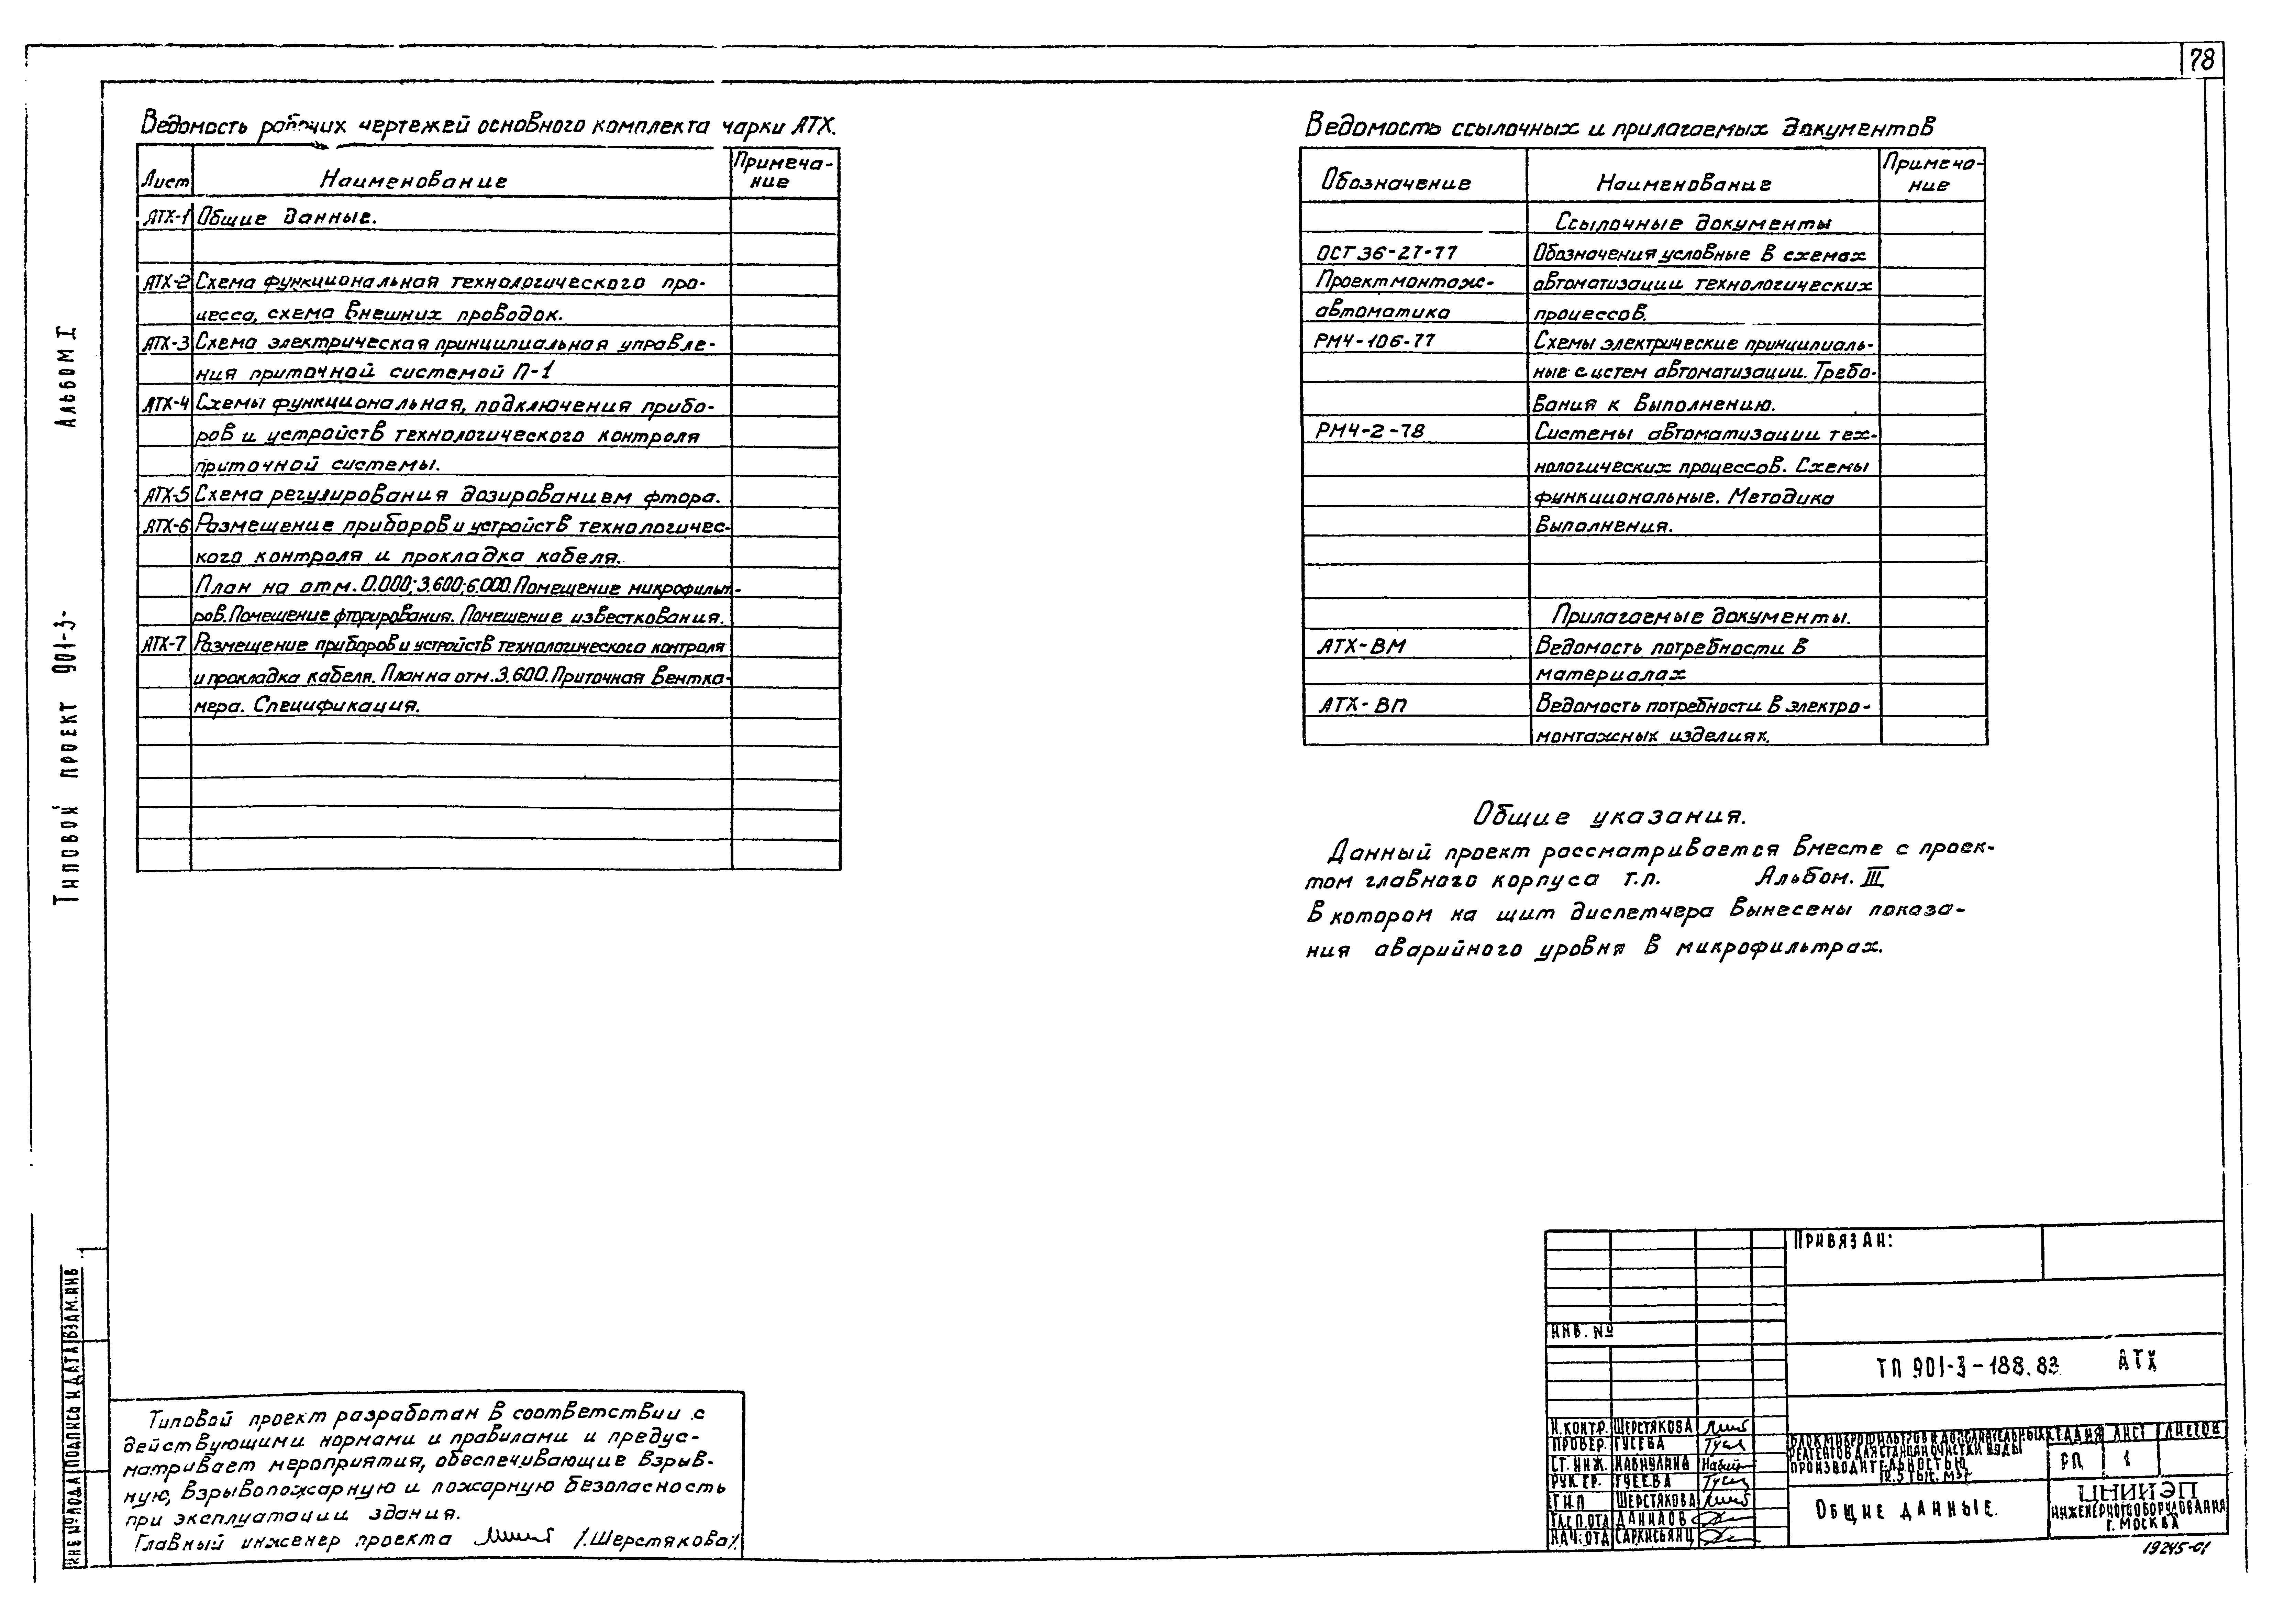 78
Ведомость рабочих чертежей основного комплекта чарки АТХ.
Лист Наименование Примеча-
ние
АТХ-1 Общие данные.
АТХ-2 Схема функциональная технологического про-
цесса, схема внешних проводок.
АТХ-3 Схема электрическая принципиальная управле-
ния приточной системой П-1
АТХ-4 Схемы функциональная, подключения прибо-
ров и устройств технологического контроля
приточной системы.
АТХ-5 Схема регулирования дозированием фтора.
АТХ-6 Размещение приборов и устройств технологичес-
кого контроля и прокладка кабеля.
План на отм. 0.000; 3.600; 6.000. Помещение микрофильт-
ров. Помещение фторирования. Помещение известкования.
АТХ-7 Размещение приборов и устройств технологического контроля
и прокладка кабеля. План на отм. 3.600. Приточная Вентка-
мера. Спецификация.
Ведомость ссылочных и прилагаемых документов
Обозначение Наименование Примеча-
ние
Ссылочные документы
ОСТ 36-27-77 Обозначения условные в схемах
Проектмонтаж- автоматизации технологических
автоматика процессов.
РМ4-106-77 Схемы электрические принципиаль-
ные систем автоматизации. Требо-
вания к выполнению.
РМ4-2-78 Системы автоматизации тех-
нологических процессов. Схемы
функциональные. Методика
Выполнения.
Прилагаемые документы.
АТХ-ВМ Ведомость потребности в
материалах
АТХ-ВП Ведомость потребности в электро-
монтажных изделиях.
Общие указания.
Данный проект рассматривается вместе с проек-
том главного корпуса т.п. Альбом. III
В котором на щит диспетчера вынесены показа-
ния аварийного уровня в микрофильтрах.
Альбом I
Типовой проект 901-3-
ИНВ № ПОДЛ ПОДПИСЬ И ДАТА ВЗАМ.ИНВ
Типовой проект разработан в соответствии с
действующими нормами и правилами и предус-
матривает мероприятия, обеспечивающие взрыв-
ную, взрывопожарную и пожарную безопасность
при эксплуатации здания.
Главный инженер проекта /Шерстякова/
ПРИВЯЗАН:
ИНВ. №
ТП 901-3-188.83 АТХ
Н.КОНТР. ШЕРСТЯКОВА
ПРОВЕР. ГУСЕВА
СТ. ИНЖ. НАБИУЛИНА
РУК. ГР. ГУСЕВА
ГИП ШЕРСТЯКОВА
ГЛ.СП.ОТД ДАНИЛОВ
НАЧ. ОТД САРКИСЬЯНЦ
БЛОК МИКРОФИЛЬТРОВ И ДОПОЛНИТЕЛЬНЫХ
РЕАГЕНТОВ ДЛЯ СТАНЦИИ ОЧИСТКИ ВОДЫ
ПРОИЗВОДИТЕЛЬНОСТЬЮ
СТАДИЯ ЛИСТ ЛИСТОВ
РП 1
ОБЩИЕ ДАННЫЕ.
ЦНИИЭП
ИНЖЕНЕРНОГО ОБОРУДОВАНИЯ
Г. МОСКВА
19245-01